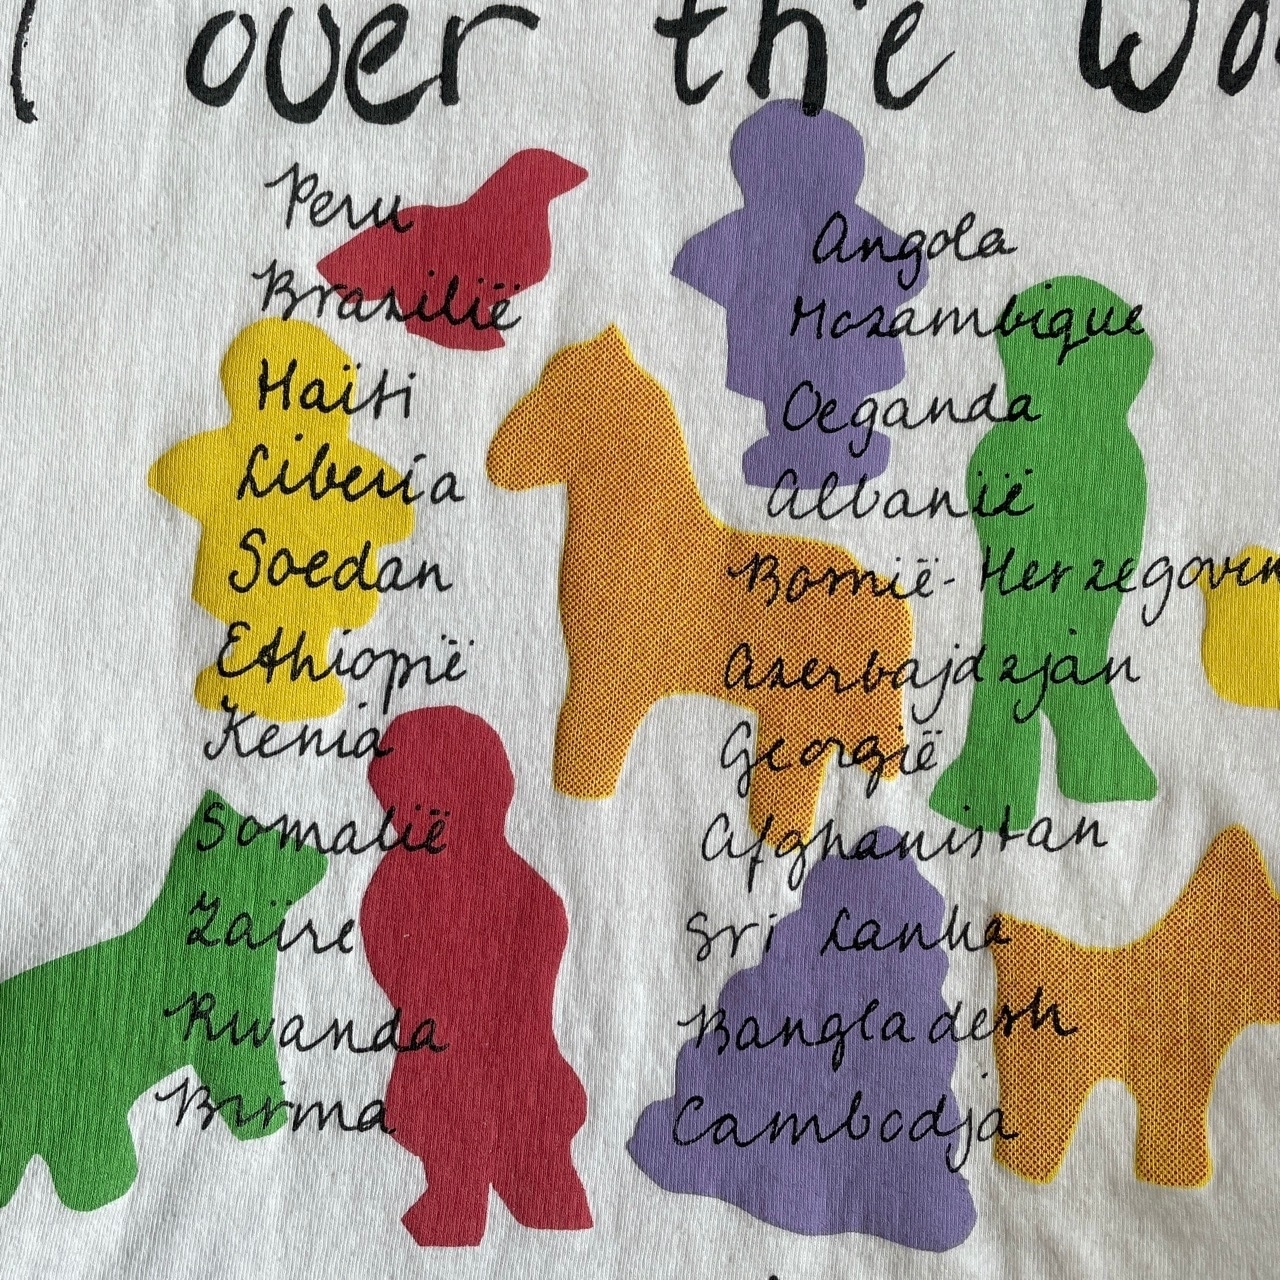 over the
Peru
Brazilië
Haïti
Liberia
Soedan
Ethiopië
Kenia
Somalië
Zaïre
Rwanda
Birma
Angola
Mozambique
Oeganda
Albanië
Bosnië-Herzegovin
Azerbajdzjan
Georgië
Afghanistan
Sri Lanka
Bangladesh
Cambodja